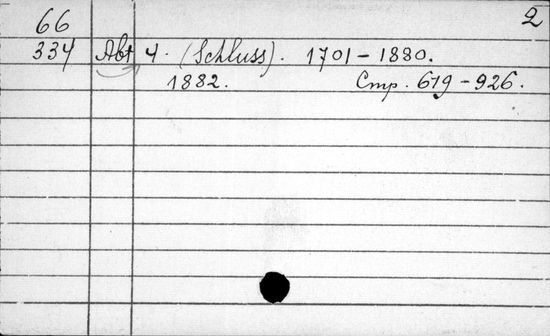 66 2
334 Abt 4. (Schluss). 1701-1880.
1882. Стр. 679-926.